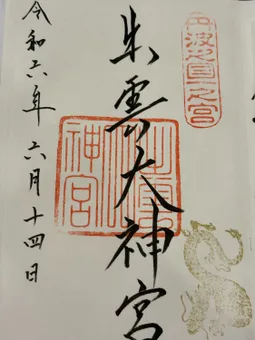 丹波之國一之宮
出雲大神宮
令和六年六月十四日